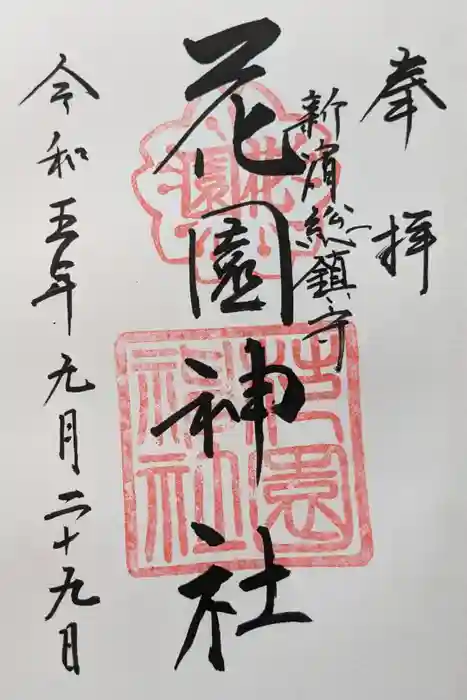 奉拝
新濱総鎮守
花園神社
令和五年九月二十九日
花園
花園
神社